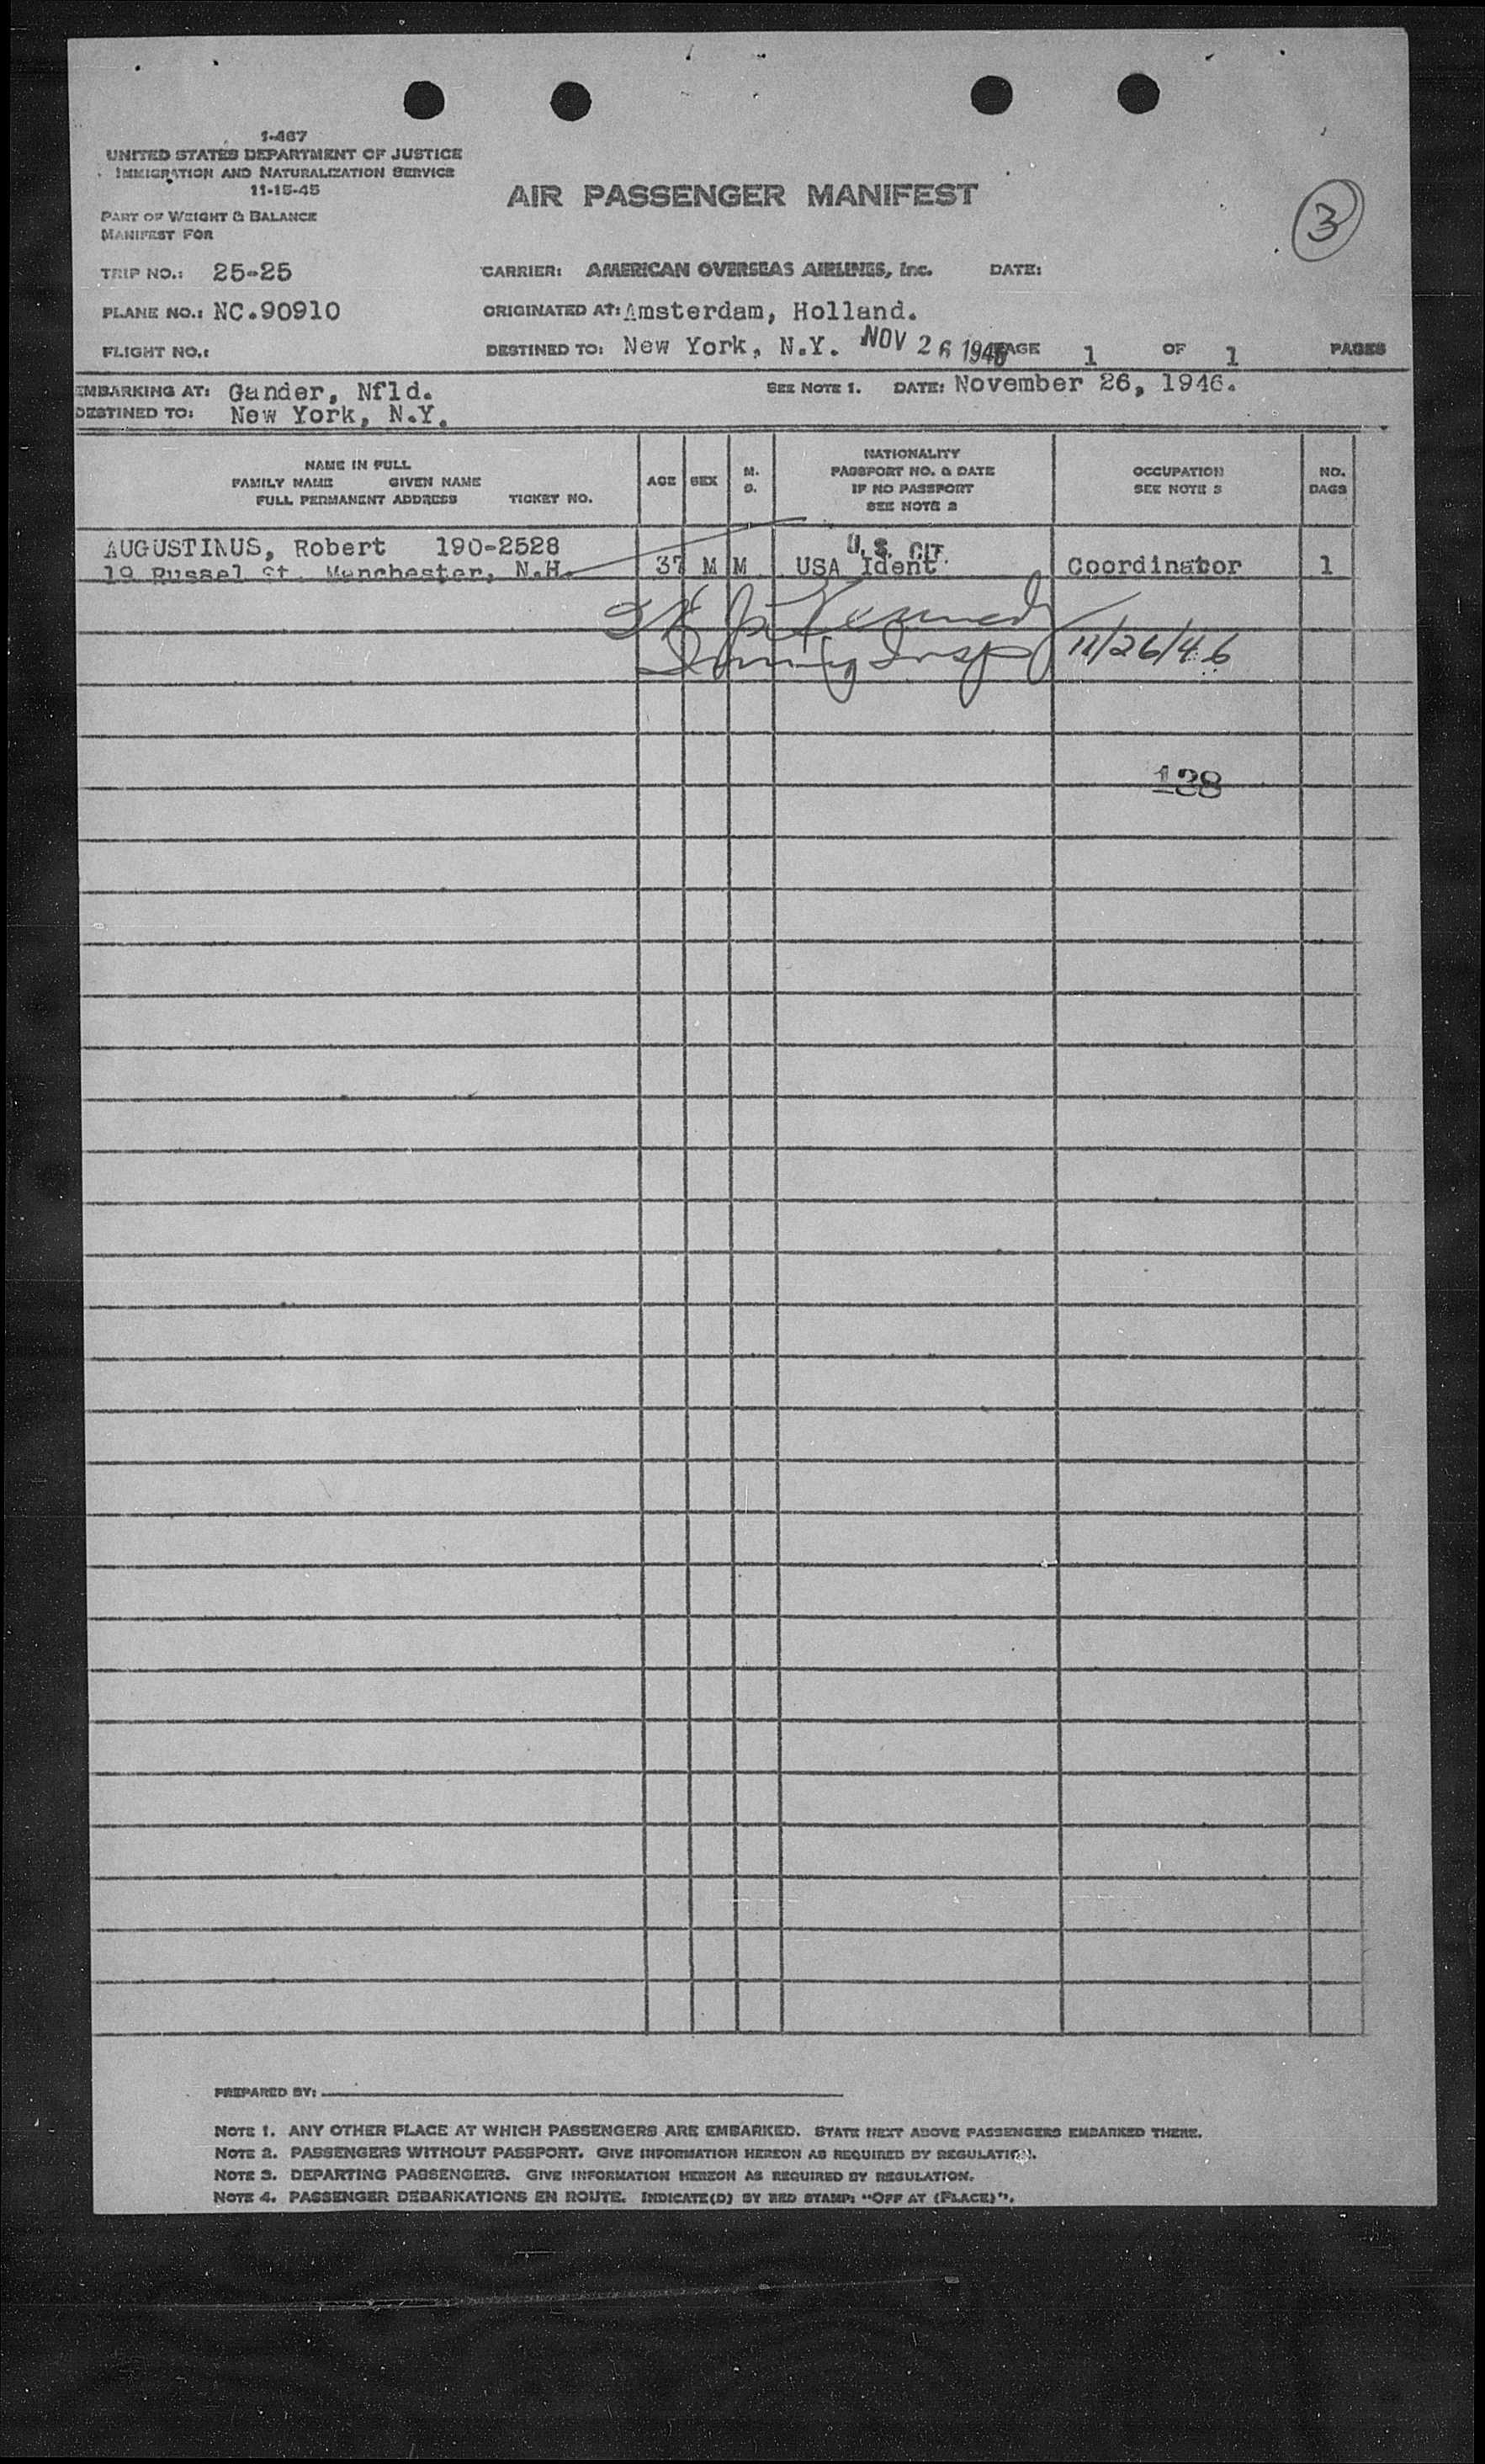 1-467
UNITED STATES DEPARTMENT OF JUSTICE
IMMIGRATION AND NATURALIZATION SERVICE
11-15-45
AIR PASSENGER MANIFEST
3
PART OF WEIGHT & BALANCE
MANIFEST FOR
TRIP NO.: 25-25 CARRIER: AMERICAN OVERSEAS AIRLINES, Inc. DATE:
PLANE NO.: NC.90910 ORIGINATED AT: Amsterdam, Holland.
FLIGHT NO.: DESTINED TO: New York, N.Y. NOV 26 1946 PAGE 1 OF 1 PAGES
EMBARKING AT: Gander, Nfld. SEE NOTE 1. DATE: November 26, 1946.
DESTINED TO: New York, N.Y.
NAME IN FULL
FAMILY NAME GIVEN NAME
FULL PERMANENT ADDRESS TICKET NO.
AGE SEX
M.
S.
NATIONALITY
PASSPORT NO. & DATE
IF NO PASSPORT
SEE NOTE 2
OCCUPATION
SEE NOTE 3
NO.
BAGS
AUGUSTINUS, Robert 190-2528 U.S. CIT.
19 Russel St. Manchester, N.H. 37 M M USA Ident. Coordinator 1
Kennedy
Insp 11/26/46
138
PREPARED BY:
NOTE 1. ANY OTHER PLACE AT WHICH PASSENGERS ARE EMBARKED. STATE NEXT ABOVE PASSENGERS EMBARKED THERE.
NOTE 2. PASSENGERS WITHOUT PASSPORT. GIVE INFORMATION HEREON AS REQUIRED BY REGULATION.
NOTE 3. DEPARTING PASSENGERS. GIVE INFORMATION HEREON AS REQUIRED BY REGULATION.
NOTE 4. PASSENGER DEBARKATIONS EN ROUTE. INDICATE(D) BY RED STAMP: "OFF AT (PLACE)".